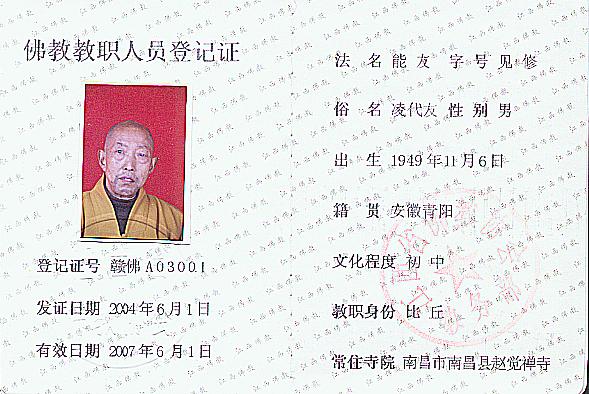 佛教教职人员登记证
登记证号 赣佛 A03001
发证日期 2004年6月1日
有效日期 2007年6月1日
法名 能友 字号 见修
俗名 凌代友 性别 男
出生 1949年11月6日
籍贯 安徽青阳
文化程度 初中
教职身份 比丘
常住寺院 南昌市南昌县赵觉禅寺